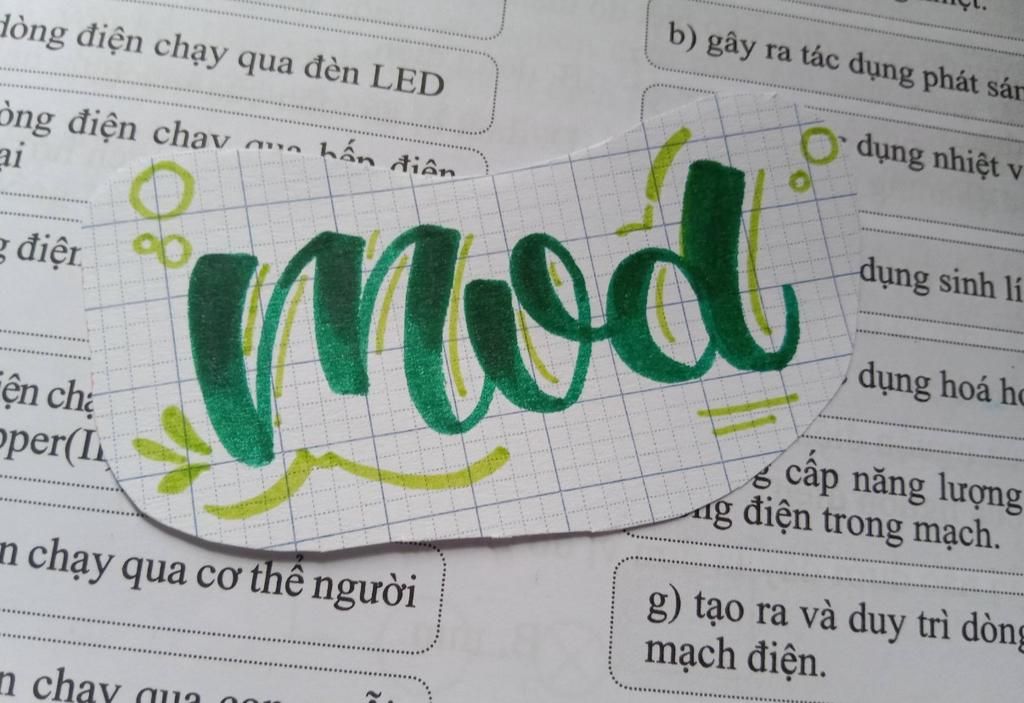 dòng điện chạy qua đèn LED
òng điện chạy qua bấn điện
ại
g điện
iện chạ
pper(II
n chạy qua cơ thể người
n chạy qua
mod
b) gây ra tác dụng phát sán
dụng nhiệt v
dụng sinh lí
dụng hoá họ
g cấp năng lượng
ng điện trong mạch.
g) tạo ra và duy trì dòng
mạch điện.